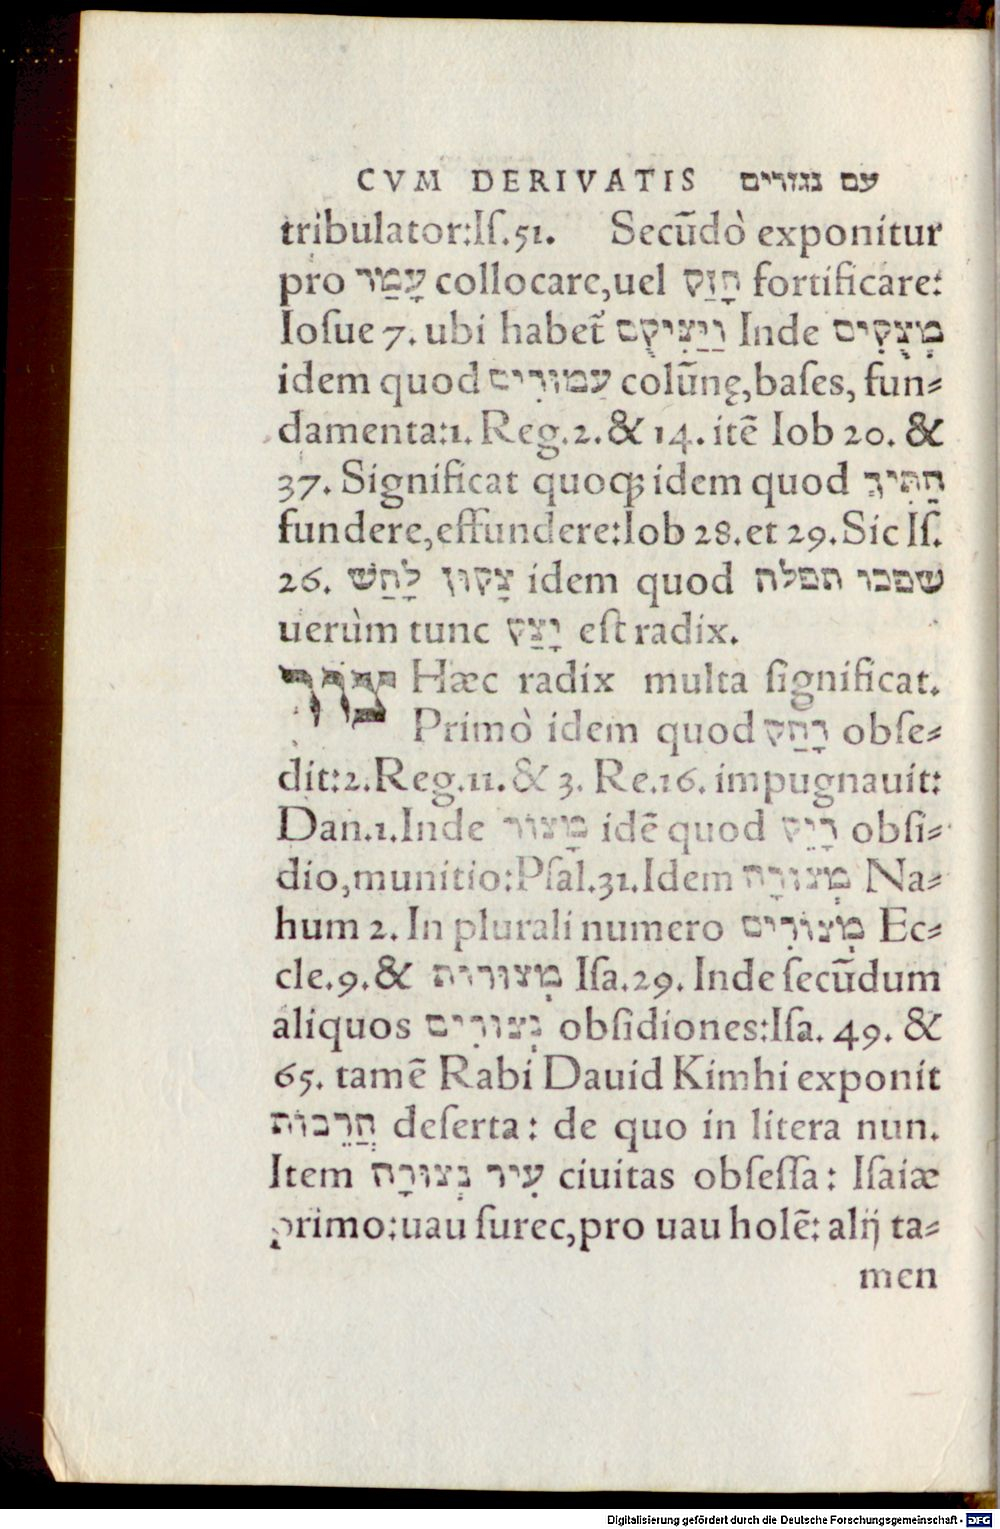 CVM DERIVATIS עם נגזרים
tribulator:Iſ.51. Secūdò exponitur
pro עָמַד collocare,uel חָזַק fortificare:
Ioſue 7. ubi habet̃ וַיַּצִּיקֻם Inde מְצֻקִים
idem quod עַמּוּדִים colūnę,baſes, fun⸗
damenta:1. Reg.2.& 14. itē Iob 20. &
37. Significat quoqꝫ idem quod הִתִּיךְ
fundere,effundere:Iob 28.et 29.Sic Iſ.
26. צָקוּן לָחַשׁ idem quod שפכו תפלה
uerùm tunc יָצַק eſt radix.
Hæc radix multa ſignificat.
Primò idem quod דָּחַק obſe⸗
dit:2.Reg.11.& 3. Re.16. impugnauit:
Dan.1.Inde מָצוֹר idē quod obſi⸗
dio,munitio:Pſal.31.Idem מְצוּרָה Na⸗
hum 2. In plurali numero מְצוֹדִים Ec⸗
cle.9.& מְצוּרוֹת Iſa.29. Inde ſecūdum
aliquos נְצוּרִים obſidiones:Iſa. 49. &
65. tamē Rabi Dauid Kimhi exponit
חֳרָבוֹת deſerta: de quo in litera nun.
Item עִיר נְצוּרָה ciuitas obſeſſa: Iſaiæ
primo:uau ſurec,pro uau holē: alij ta⸗
men
Digitalisierung gefördert durch die Deutsche Forschungsgemeinschaft - DFG